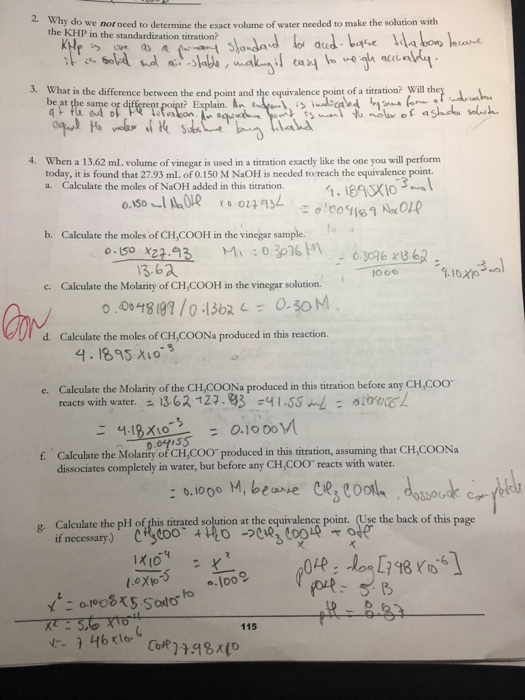 2. Why do we not need to determine the exact volume of water needed to make the solution with
the KHP in the standardization titration?
KHp is use as a primary standard for acid-base titrations because
it is solid and air-stable, making it easy to weigh accurately.
3. What is the difference between the end point and the equivalence point of a titration? Will they
be at the same or different point? Explain. An endpoint, is indicated by some form of
at the end of the titration. An equivalence point is the moles of a
equal the moles of the being titrated
4. When a 13.62 mL volume of vinegar is used in a titration exactly like the one you will perform
today, it is found that 27.93 mL of 0.150 M NaOH is needed to reach the equivalence point.
a. Calculate the moles of NaOH added in this titration. 4.1895X10⁻³mol
0.150 NaOH x 0.02793L = 0.004189 NaOH
b. Calculate the moles of CH₃COOH in the vinegar sample.
0.150 x27.93 M₁ = 0.3076 M = 0.3076 x13.62 =
13.62 1000 4.10x10⁻³mol
c. Calculate the Molarity of CH₃COOH in the vinegar solution.
0.0048189/0.1362 L = 0.30M
d. Calculate the moles of CH₃COONa produced in this reaction.
4.1895 x10⁻³
e. Calculate the Molarity of the CH₃COONa produced in this titration before any CH₃COO⁻
reacts with water. = 13.62+27.93 =41.55 mL = 0.04155L
= 4.18x10⁻³ = 0.1000M
0.04155
f. Calculate the Molarity of CH₃COO⁻ produced in this titration, assuming that CH₃COONa
dissociates completely in water, but before any CH₃COO⁻ reacts with water.
= 0.1000 M, because CH₃COONa
g. Calculate the pH of this titrated solution at the equivalence point. (Use the back of this page
if necessary.) CH₃COO⁻ + H₂O -> CH₃COOH + OH⁻
x x
1x10⁻⁴ = x²
1.0x10⁻⁵ 0.1008
pOH = -log[7.98 x10⁻⁶]
pOH = 5.13
pH = 8.87
x² = 0.1008x5.50x10⁻¹⁰
x² = 5.6 x10⁻¹¹
x = 7.46x10⁻⁶
[OH]7.98x10
115